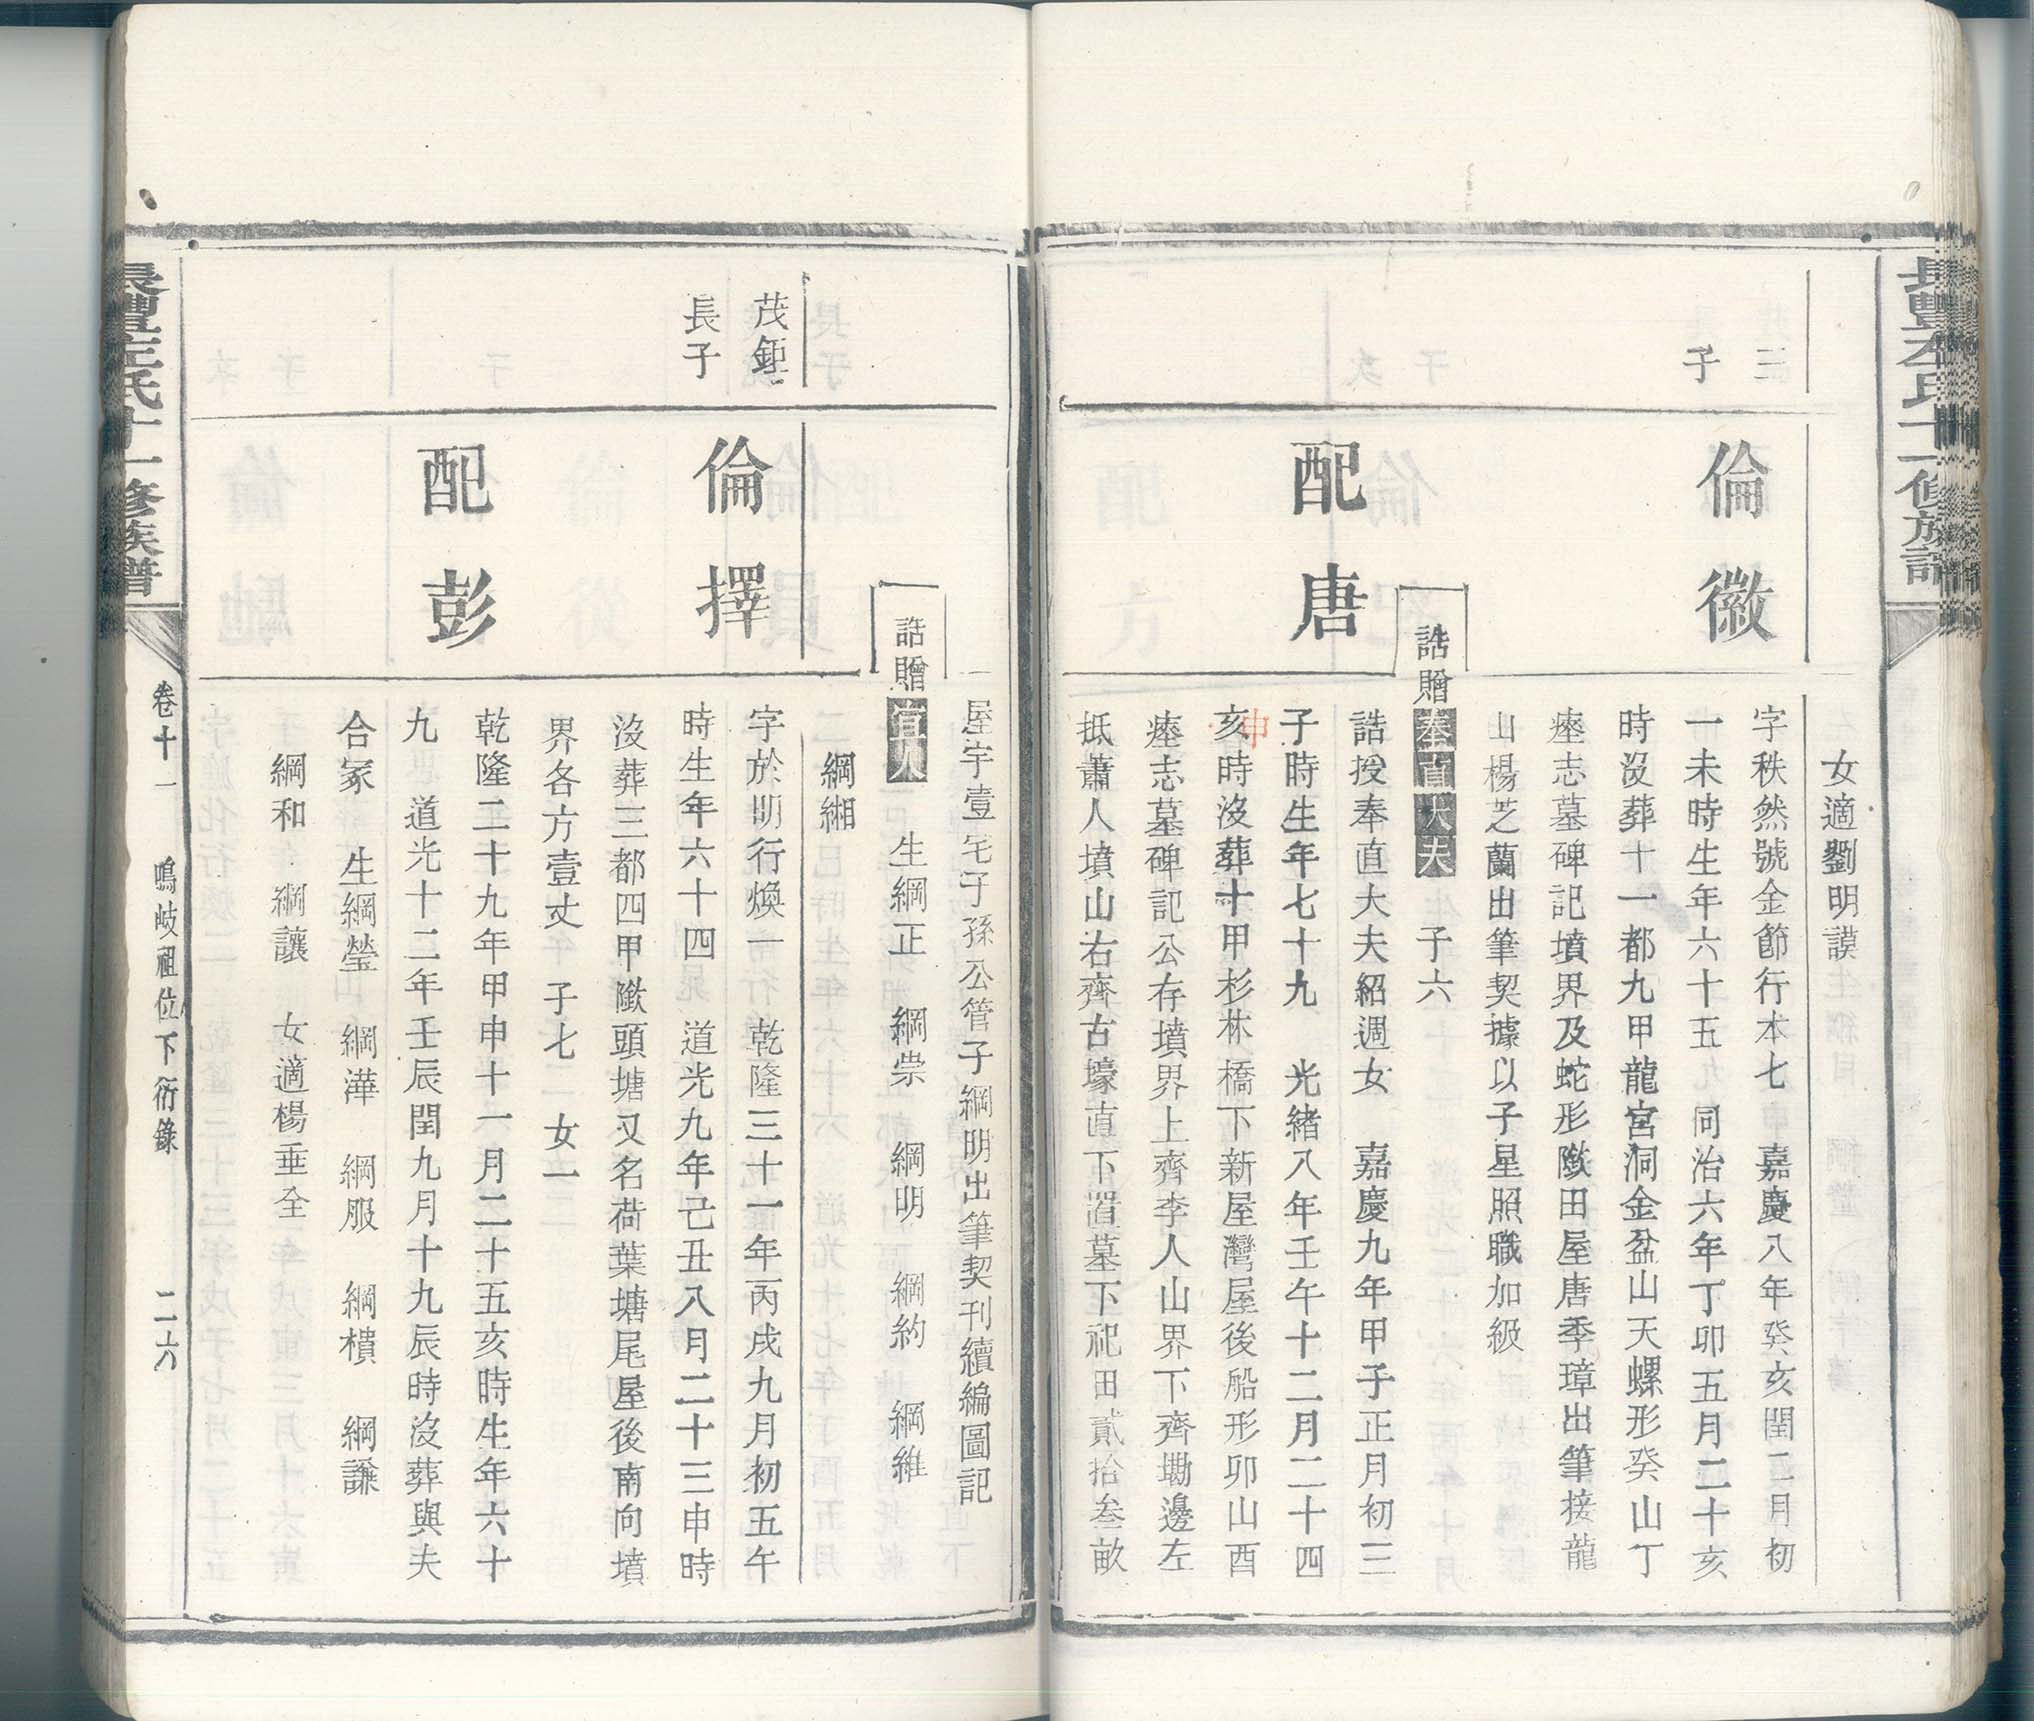 長豐左氏十一修族譜
女適劉明謨
三
子
倫徽
字秩然號金節行本七　嘉慶八年癸亥閏二月初
一未時生年六十五　同治六年丁卯五月二十亥
時沒葬十一都九甲龍宮洞金盆山天螺形癸山丁
瘞志墓碑記墳界及蛇形墩田屋唐季璋出筆接龍
山楊芝蘭出筆契據以子星照職加級
誥贈奉直大夫　子六
配唐
誥授奉直大夫紹週女　嘉慶九年甲子正月初三
子時生年七十九　光緒八年壬午十二月二十四
申
亥時沒葬十甲杉林橋下新屋灣屋後船形卯山酉
瘞志墓碑記公存墳界上齊李人山界下齊墈邊左
抵蕭人墳山右齊古壕直下置墓下祀田貳拾叁畝
屋宇壹宅子孫公管子綱明出筆契刊續編圖記
誥贈宜人　生綱正　綱崇　綱明　綱約　綱維
綱緗
茂鉅
長子
倫擇
字於明行煥一　乾隆三十一年丙戌九月初五午
時生年六十四　道光九年己丑八月二十三申時
沒葬三都四甲墩頭塘又名荷葉塘尾屋後南向墳
界各方壹丈　子七　女一
配彭
乾隆二十九年甲申十一月二十五亥時生年六十
九　道光十二年壬辰閏九月十九辰時沒葬與夫
合冢　生綱瑩　綱澕　綱服　綱樻　綱謙
綱和　綱讓　女適楊垂全
長豐左氏十一修族譜
卷十一　鳴岐祖位下衍錄　二六